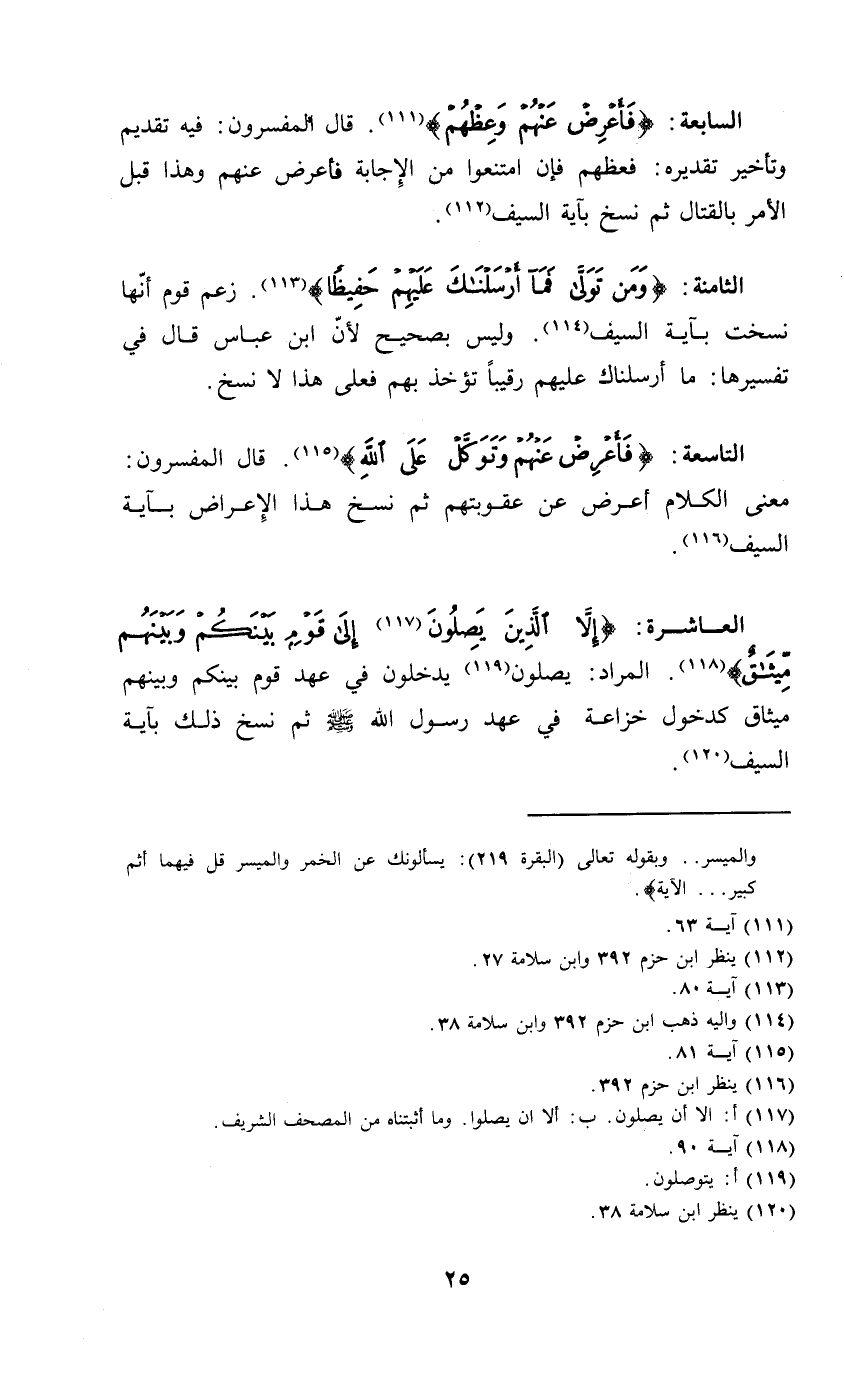 السابعة: ﴿فَأَعْرِضْ عَنْهُمْ وَعِظْهُمْ﴾(١١١). قال المفسرون: فيه تقديم
وتأخير تقديره: فعظهم فإن امتنعوا من الإِجابة فأعرض عنهم وهذا قبل
الأمر بالقتال ثم نسخ بآية السيف(١١٢).
الثامنة: ﴿وَمَن تَوَلَّىٰ فَمَآ أَرْسَلْنَـٰكَ عَلَيْهِمْ حَفِيظًا﴾(١١٣). زعم قوم أنّها
نسخت بـآيـة السيف(١١٤). وليس بصحيح لأنّ ابن عباس قـال في
تفسيرها: ما أرسلناك عليهم رقيباً تؤخذ بهم فعلى هذا لا نسخ.
التاسعة: ﴿فَأَعْرِضْ عَنْهُمْ وَتَوَكَّلْ عَلَى ٱللَّهِ﴾(١١٥). قال المفسرون:
معنى الكـلام أعـرض عن عقـوبتهم ثم نسـخ هـذا الإِعـراض بـآيـة
السيف(١١٦).
العـاشـرة: ﴿إِلَّا ٱلَّذِينَ يَصِلُونَ(١١٧) إِلَىٰ قَوْمٍۭ بَيْنَكُمْ وَبَيْنَهُم
مِّيثَـٰقٌ﴾(١١٨). المراد: يصلون(١١٩) يدخلون في عهد قوم بينكم وبينهم
ميثاق كدخول خزاعـة في عهد رسـول الله ﷺ ثم نسخ ذلـك بآيـة
السيف(١٢٠).
والميسر.. وبقوله تعالى (البقرة ٢١٩): يسألونك عن الخمر والميسر قل فيهما أثم
كبير... الآية﴾.
(١١١) آيـة ٦٣.
(١١٢) ينظر ابن حزم ٣٩٢ وابن سلامة ٢٧.
(١١٣) آيـة ٨٠.
(١١٤) واليه ذهب ابن حزم ٣٩٢ وابن سلامة ٣٨.
(١١٥) آيـة ٨١.
(١١٦) ينظر ابن حزم ٣٩٢.
(١١٧) أ: الا أن يصلون. ب: ألا ان يصلوا. وما أثبتناه من المصحف الشريف.
(١١٨) آيـة ٩٠.
(١١٩) أ: يتوصلون.
(١٢٠) ينظر ابن سلامة ٣٨.
٢٥